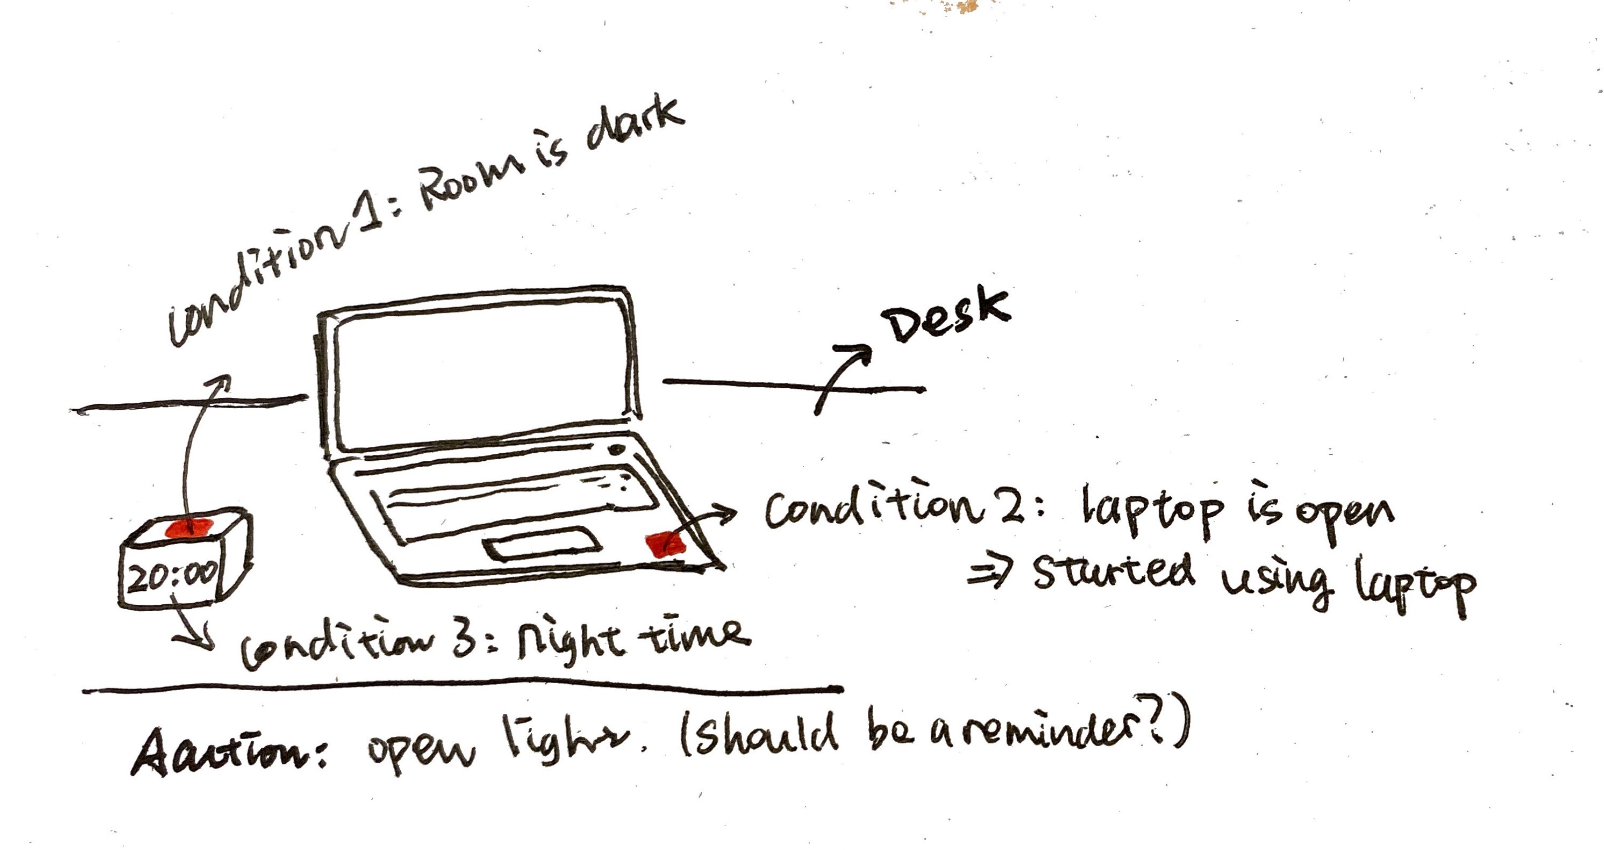 condition 1: Room is dark
Desk
condition 2: laptop is open
⇒ started using laptop
20:00
condition 3: night time
Aaction: open light. (should be a reminder?)